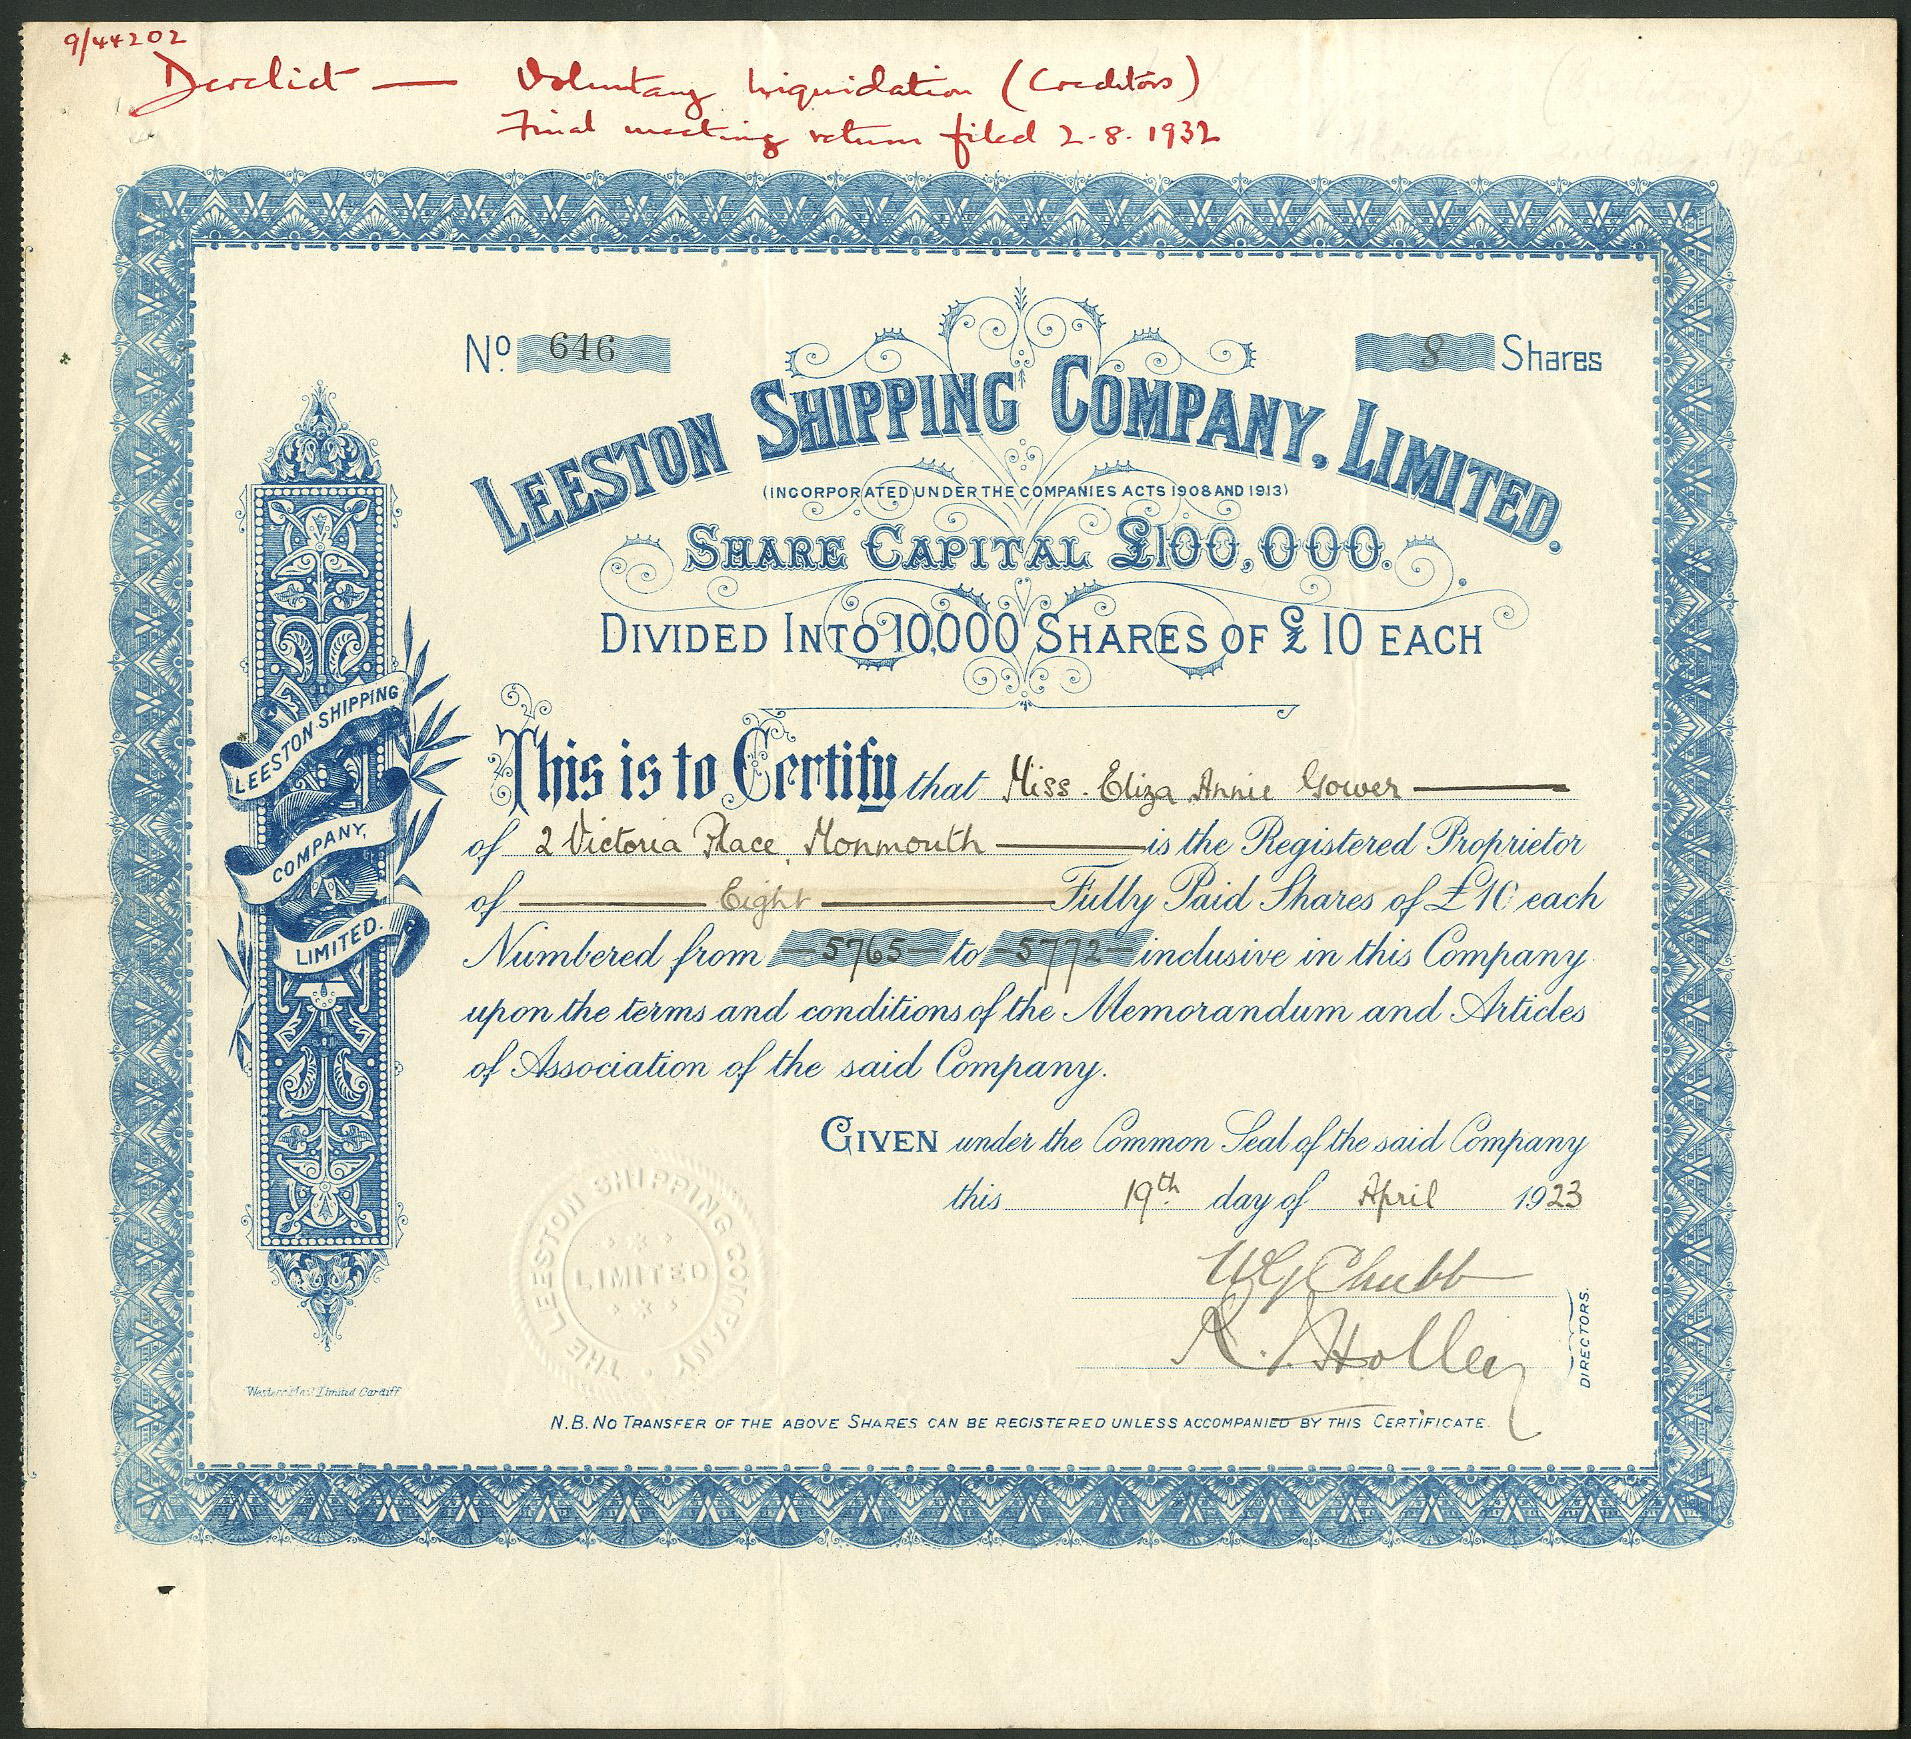 9/44202
Derelict — Voluntary Liquidation (Creditors)
Final meeting return filed 2-8-1932
No. 646
8 Shares
LEESTON SHIPPING COMPANY, LIMITED.
(INCORPORATED UNDER THE COMPANIES ACTS 1908 AND 1913)
SHARE CAPITAL £100,000.
DIVIDED INTO 10,000 SHARES OF £10 EACH
LEESTON SHIPPING
COMPANY,
LIMITED.
This is to Certify that Miss. Eliza Annie Gower
of 2 Victoria Place, Monmouth is the Registered Proprietor
of Eight Fully Paid Shares of £10 each
Numbered from 5765 to 5772 inclusive in this Company
upon the terms and conditions of the Memorandum and Articles
of Association of the said Company.
GIVEN under the Common Seal of the said Company
this 19th day of April 1923
THE LEESTON SHIPPING COMPANY
LIMITED
W G Chubb
R. J. Holley
DIRECTORS.
Western Mail Limited Cardiff
N.B. NO TRANSFER OF THE ABOVE SHARES CAN BE REGISTERED UNLESS ACCOMPANIED BY THIS CERTIFICATE.